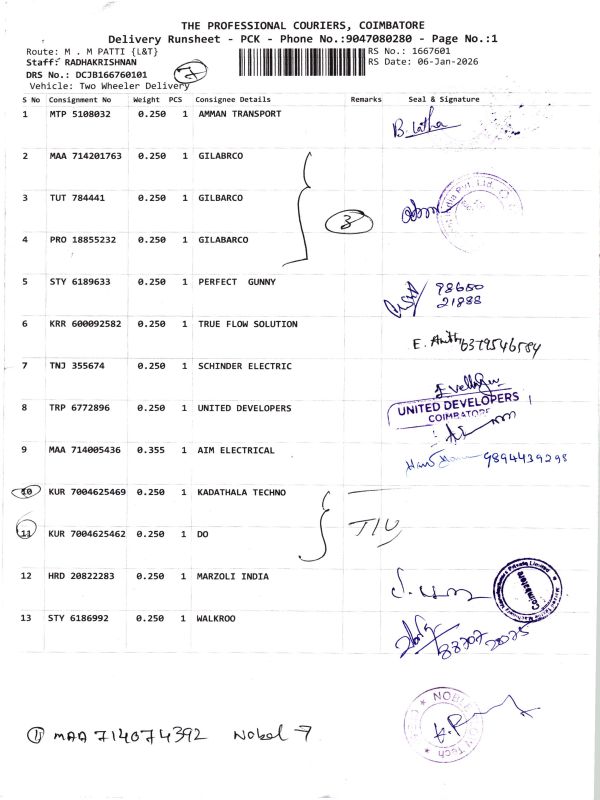 THE PROFESSIONAL COURIERS, COIMBATORE
Delivery Runsheet - PCK - Phone No.:9047080280 - Page No.:1
Route: M . M PATTI {L&T} RS No.: 1667601
Staff: RADHAKRISHNAN RS Date: 06-Jan-2026
DRS No.: DCJB166760101 7
Vehicle: Two Wheeler Delivery
S No Consignment No Weight PCS Consignee Details Remarks Seal & Signature
1 MTP 5108032 0.250 1 AMMAN TRANSPORT B. Latha
2 MAA 714201763 0.250 1 GILABRCO
3 TUT 784441 0.250 1 GILBARCO 3
4 PRO 18855232 0.250 1 GILABARCO
5 STY 6189633 0.250 1 PERFECT GUNNY 98680
21888
6 KRR 600092582 0.250 1 TRUE FLOW SOLUTION E. 6379546584
7 TNJ 355674 0.250 1 SCHINDER ELECTRIC
8 TRP 6772896 0.250 1 UNITED DEVELOPERS UNITED DEVELOPERS
COIMBATORE
9 MAA 714005436 0.355 1 AIM ELECTRICAL 9894439298
10 KUR 7004625469 0.250 1 KADATHALA TECHNO
11 KUR 7004625462 0.250 1 DO
12 HRD 20822283 0.250 1 MARZOLI INDIA Coimbatore
13 STY 6186992 0.250 1 WALKROO
MAA 714074392 Nobel - 7